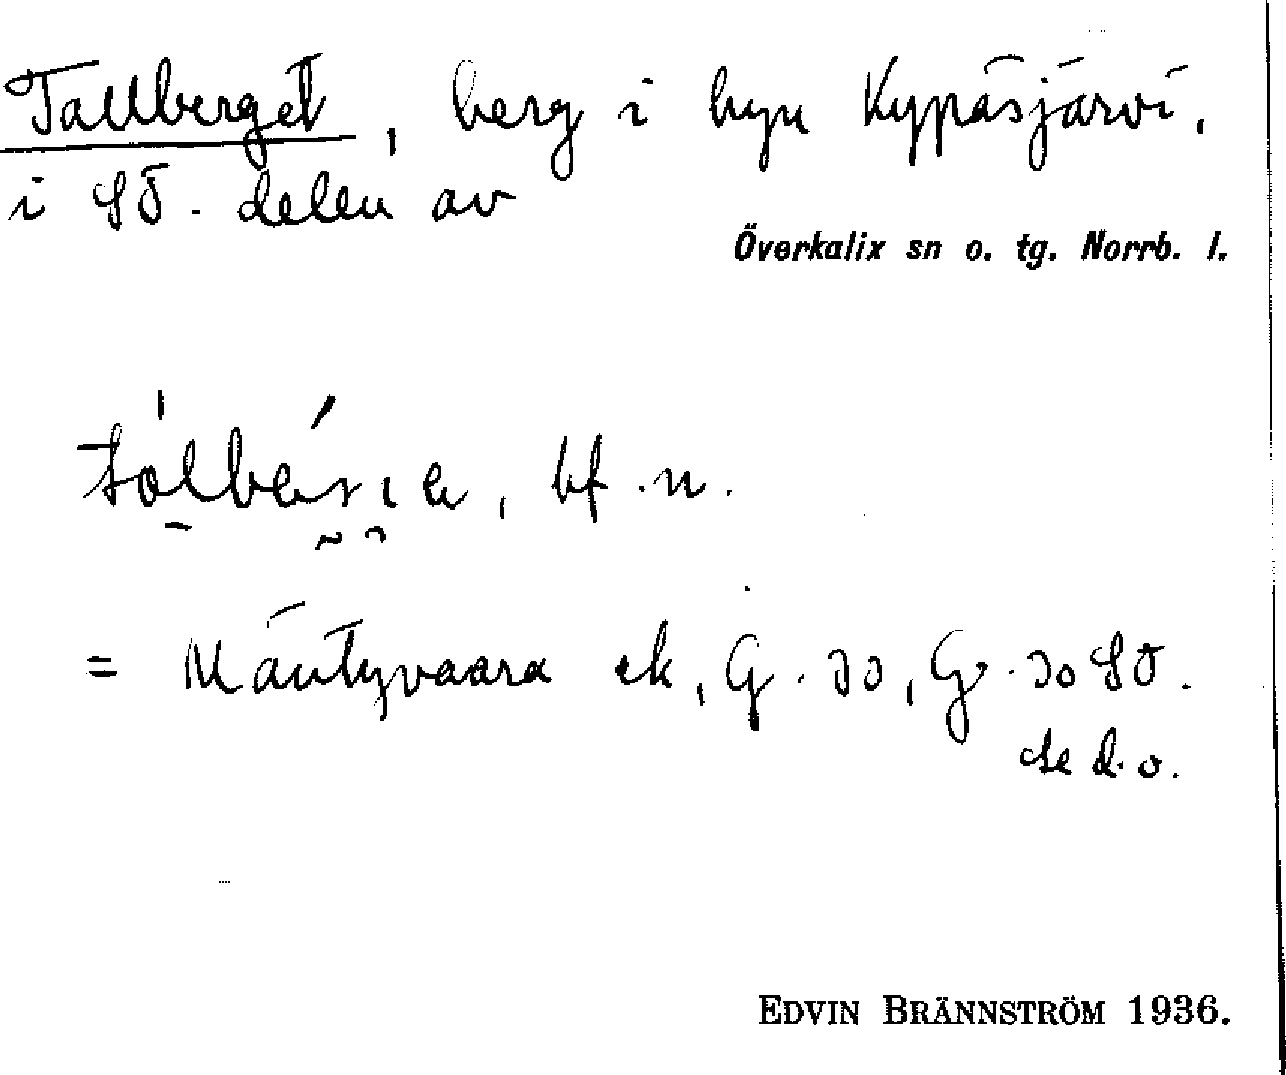 Tallberget, berg i byn Kypäsjärvi,
i SÖ. delen av
Överkalix sn o. tg. Norrb. l.
bf. n.
= Mäntyvaara ek, G. 30, G. 30 SÖ.
se d. o.
EDVIN BRÄNNSTRÖM 1936.